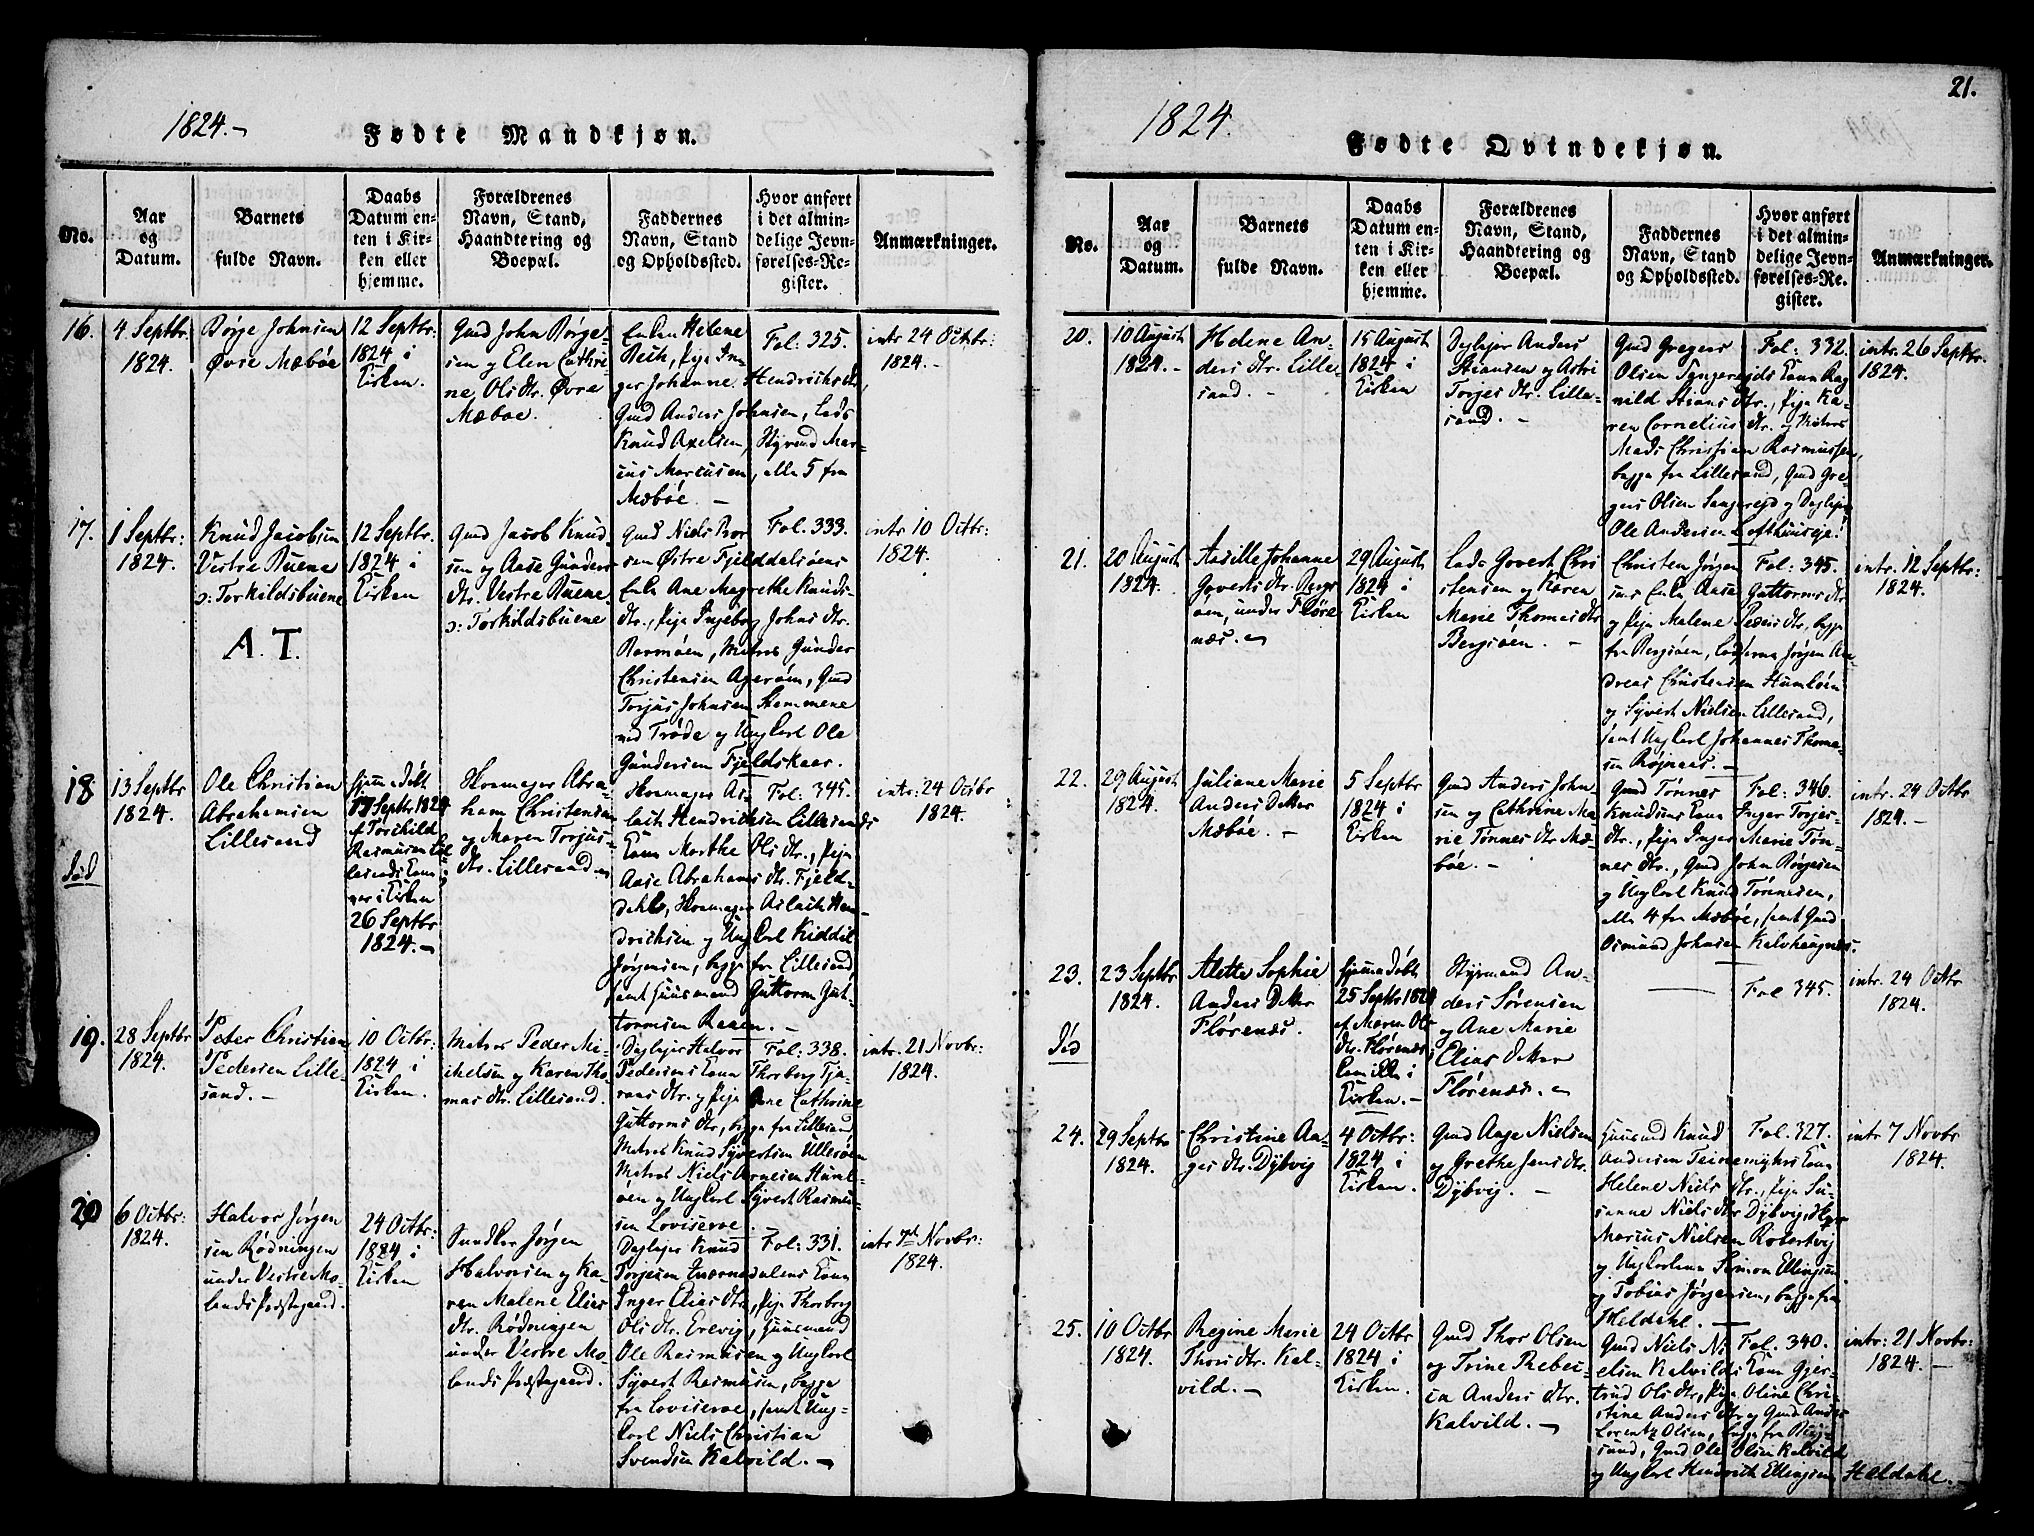 1824.-
Fødte Mandkjøn.
No.
Aar
og
Datum.
Barnets
fulde Navn.
Daabs
Datum en-
ten i Kir-
ken eller
hjemme.
Forældrenes
Navn, Stand,
Haandtering og
Boepæl.
Faddernes
Navn, Stand
og Opholdssted.
Hvor anført
i det almin-
delige Jevn-
førelses-Re-
gister.
Anmærkninger.
16.
4 Septbr
1824.
Børge Johnsen
Øvre Mæbøe
12 Septbr:
1824 i
Kirken.
Gmd John Børge-
sen og Elen Cathri-
ne Ols dtr. Øvre
Mæbøe.
Enken Helene
Beth, Pige In-
ger Johanne Hendrichs dtr,
Gmd Anders Johnsen, Lods
Knud Axelsen, Styrmd Mar-
cus Marcusen, alle 5 fra
Mæbøe. -
Fol: 325.
intr 24 Octbr:
1824. -
17.
1 Septbr:
1824.
Knud Jacobsen
Vestre Buene
ɔ: Torkildsbuene
A. T.
12 Septbr.
1824 i
Kirken
Gmd Jacob Knud-
sen og Aase Gunders
dtr. Vestre Buene
ɔ: Torkildsbuene
Gmd Niels Bror-
sen Østre Fjelddalsøens
Enke Ane Magrethe Knuds-
dtr., Pige Ingeborg Johns dtr.
Ramsøen, Matros Gunder
Christensen Agerøen, Gmd
Torjus Johnsen Stemmene
ved Trøde og Ung Carl Ole
Gundersen Fjeldskaar.
Fol. 333.
intr 10 Octbr:
1824.
18
død
13 Septbr
1824.
Ole Christian
Abrahamsen
Lillesand
hjemmedøbt
17 Septbr. 1824
af Torchild
Rasmusen Lil-
lesands Kone
var i Kirken
26 Septbr
1824. -
Skomager Abra-
ham Christensen
og Maren Torjus-
dtr. Lillesand
Skomager As-
lach Hendrichsen Lillesands
Kone Marthe Ols dtr., Pige
Aase Abrahams dtr. Fjeld-
dahl, Skomager Aslach Hen-
drichsen og Ung Carl Kiddil
Jørgensen, begge fra Lillesand
samt Huusmand Guttorm Gut-
tormsen Reven. -
Fol: 345.
intr: 24 Octbr
1824.
19.
28 Septbr
1824.
Peter Christian
Pedersen Lille-
sand. -
10 Octbr:
1824 i
Kirken.
Matros Peder Mi-
chelsen og Karen Tho-
mas dtr. Lillesand.
Dagleier Halvor
Pedersens Kone Thorborg Tja-
raas dtr. og Pige Ane Cathrine
Guttorms dtr, begge fra Lillesand
Matros Knud Syvertsen Ulløen
Matros Niels Arnesen Humle-
øen og Ung Carl Syvert Rasmu-
sen Loviseroe.
Fol: 338.
intr. 21 Novbr:
1824.
20
6 Octbr:
1824.
Halvor Jørgen-
sen Rødningen
under Vestre Mo-
lands Præstegaard.
24 Octbr:
1824 i
Kirken
Snedker Jørgen
Halvorsen og Ka-
ren Malene Elias
dtr. Rødningen
under Vestre Mo-
lands Præstegaard.
Dagleier Knud
Torjesen Inernedalens Kone
Inger Elias dtr, Pige Thorborg
Ols dtr. Erevig, Huusmand
Ole Rasmusen og Ung Carl
Syvert Rasmusen, begge
fra Loviseroe, samt Ung-
Carl Niels Christian
Svendsen Kalvild. -
Fol: 331.
intr 7d Novbr:
1824.
21.
1824.
Fødte Qvindekjøn.
No.
Aar
og
Datum.
Barnets
fulde Navn.
Daabs
Datum en-
ten i Kir-
ken eller
hjemme.
Forældrenes
Navn, Stand,
Haandtering og
Boepæl.
Faddernes
Navn, Stand
og Opholdssted.
Hvor anført
i det almin-
delige Jevn-
førelses-Re-
gister.
Anmærkninger.
20.
10 August
1824. -
Helene An-
ders dtr. Lille-
sand. -
15 August
1824 i
Kirken
Dagleier Anders
Stiansen og Astri
Torjes dtr. Lille-
sand. -
Gmd Gregers
Olsen Tyngerejds Kone Rag-
nild Stians dtr., Pige Ka-
ren Cornelius dtr. og Matros
Mads Christian Rasmussen,
begge fra Lillesand, Gmd Gre-
gers Olsen Sangereid og Dagleier
Ole Andersen Lofthuuseje.
Fol: 332.
intr. 26 Septbr.
1824.
21.
20 August
1824.
Aasille Johanne
Goverts dtr. Berg-
øen, under Fløre
næs.
29 August
1824 i
Kirken
Lods Govert Chri
stensen og Karen
Marie Thomas dtr
Bergsøen. -
Christen Jørgen
sens Enke Aase Guttorms dtr
og Pige Malene Peders dtr, begge
fra Bergsøen, Lodserne Jørgen An-
dreas Christensen Humløen
og Syvert Nielsen Lillesand,
samt Ung Carl Johannes Thoma-
sen Røjnaas. -
Fol: 345.
intr: 12 Septbr:
1824.
22.
29 August
1824.
Juliane Marie
Anders Datter
Mæbøe. -
5 Septbr
1824 i
Kirken
Gmd Anders John-
sen og Cathrine Ma-
rie Tønnes dtr Mæ-
bøe. -
Gmd Tønnes
Knudsens Kone Inger Torjes-
dtr., Pige Inger Marie Tøn-
nes dtr., Gmd John Børgesen
og Ung Carl Knud Tønnesen,
alle 4 fra Mæbøe, samt Gmd
Osmund Johnsen Kalvehaugnæs.
Fol: 346.
intr. 24 Octbr
1824. -
23.
død
23 Septbr
1824.
Alette Sophie
Anders Datter
Flørenæs.
hjemmedøbt
25 Septbr 1824
af Maren Ols
dtr. Flørenæs,
kom ikke i
Kirken. -
Styrmand An-
ders Sørensen
og Ane Marie
Elias Datter
Flørenæs.
Fol 345.
intr. 24 Octbr
1824.
24.
29 Septbr
1824.
Christine An-
ges dtr. Dybvig
4 Octbr:
1824 i
Kirken.
Gmd Aage Nielsen
og Grethe Jens dtr.
Dybvig. -
Huusmd Knud
Andersen Teinemyhrs Kone
Helene Niels dtr., Pige Su-
sanne Niels dtr Dybvig, Skpr
Marius Nielsen Robertvig
og Ung Carlene Simon Ellingsen
og Tobias Jørgensen, begge fra
Heldahl. -
Fol. 327.
intr 7 Novbr
1824.
25.
10 Octbr
1824.
Regine Marie
Thors dtr. Kal-
vild. -
24 Octbr
1824 i
Kirken.
Gmd Thor Olsen
og Trine Rebec-
ca Anders dtr.
Kalvild. -
Gmd Niels Ni-
elsen Kalvilds Kone Gjer-
trud Ols dtr, Pige Oline Chri-
stine Anders dtr og Gmd Anders
Lorentz Olsen, begge fra Brig-
sund, Gmd Ole Olsen Kalvild
og Ung Carl Hendrich Ellingsen Heldahl.
Fol. 340.
intr: 21 Novbr:
1824. -